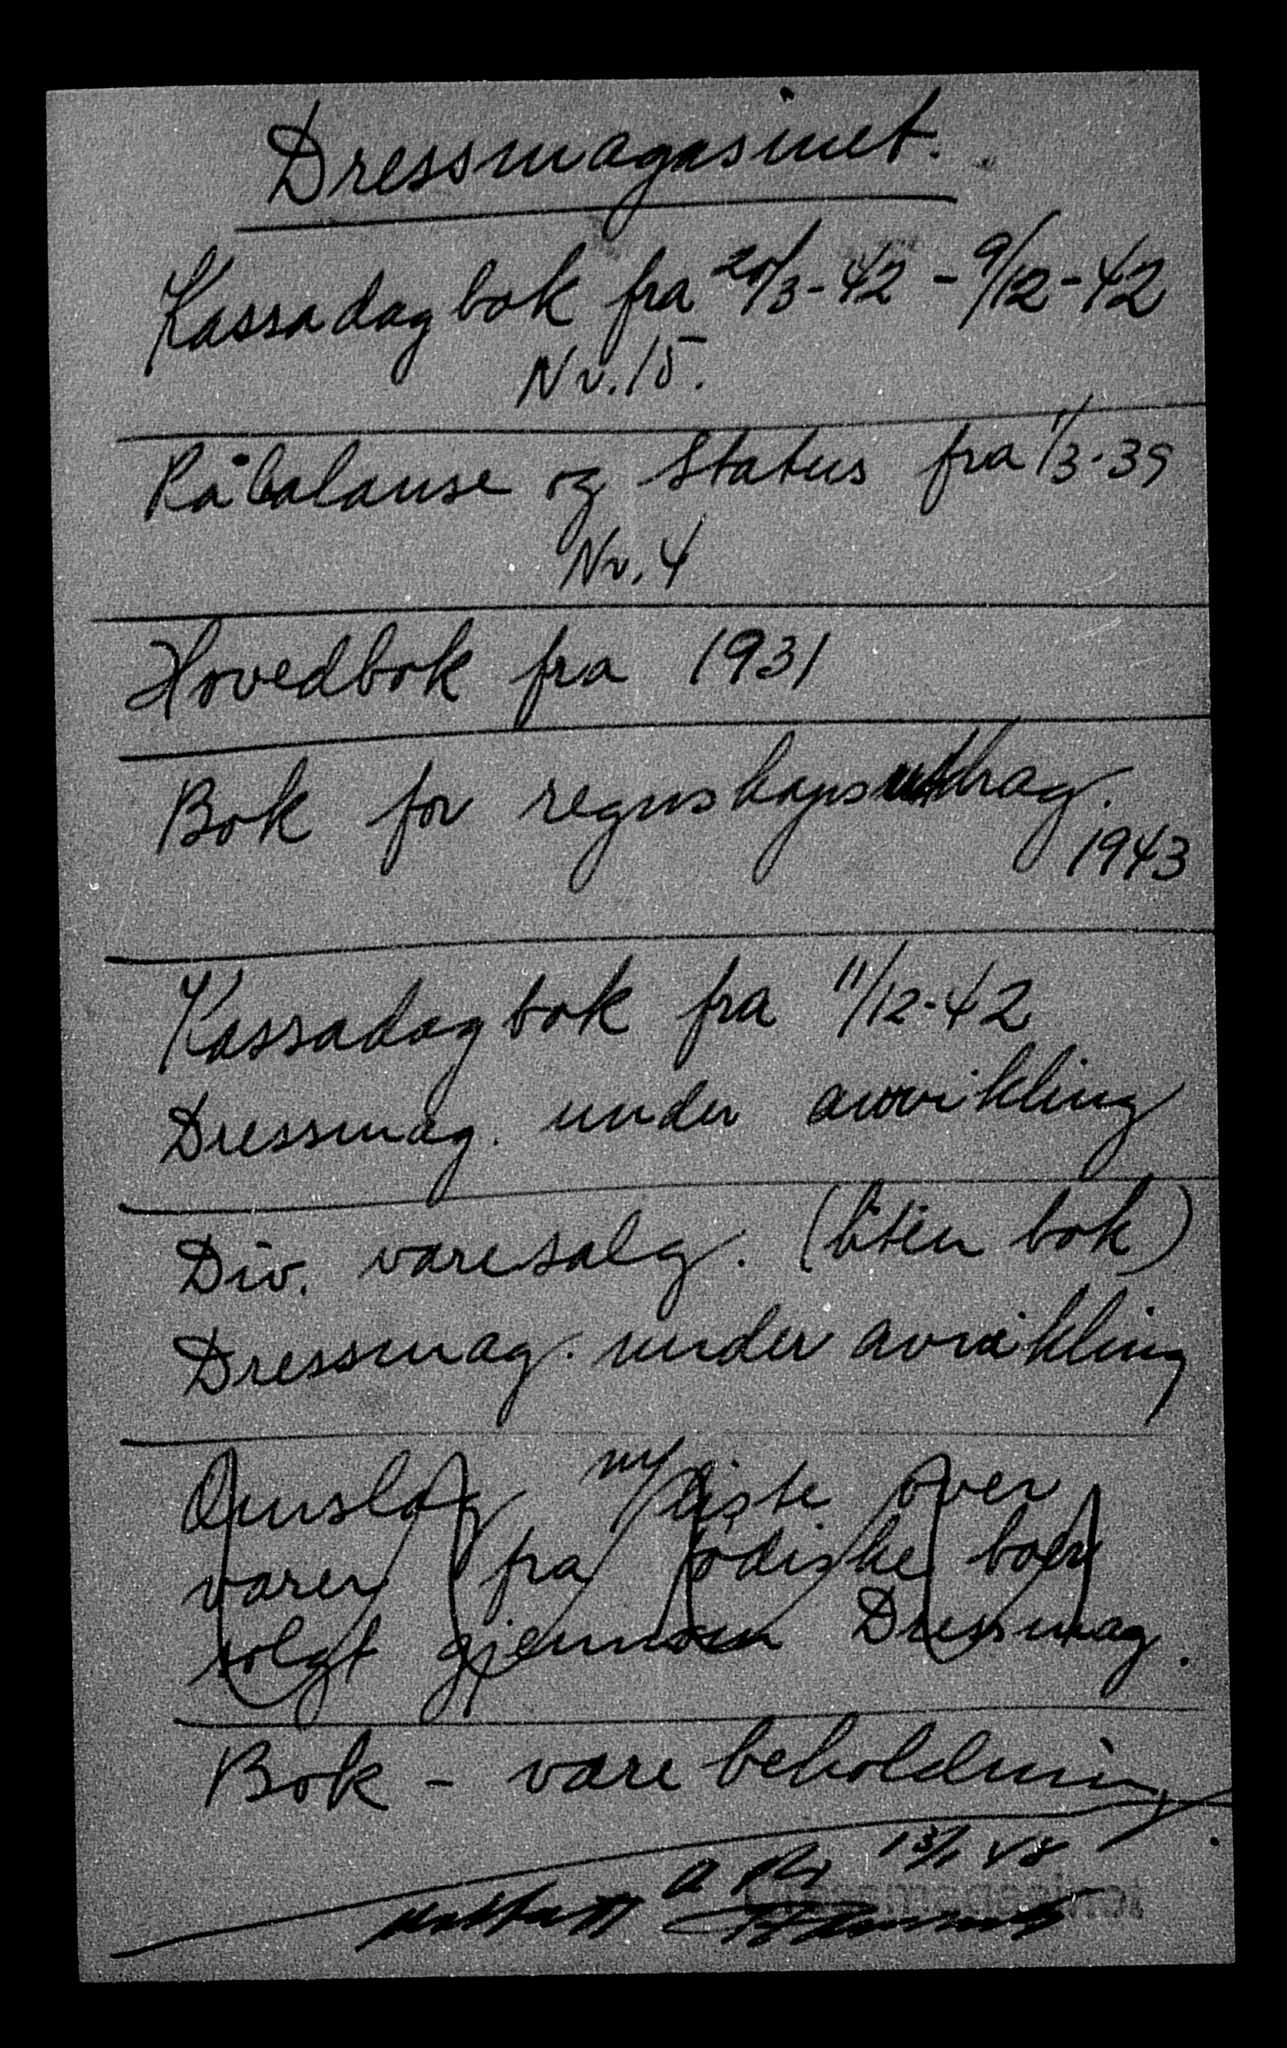 Dressmagasinet.
Kassadagbok fra 20/3-42 - 9/12-42
Nr. 15.
Råbalanse og Status fra 1/3-39
Nr. 4
Hovedbok fra 1931
Bok for regnskapsutdrag.
1943
Kassadagbok fra 11/12-42
Dressmag. under avvikling
Div. varesalg. (liten bok)
Dressmag. under avvikling
Omslag m/liste over
varer fra jödiske boer
solgt gjennom Dressmag.
Bok - varebeholdning
13/1 48
Mottatt
Dressmagasinet